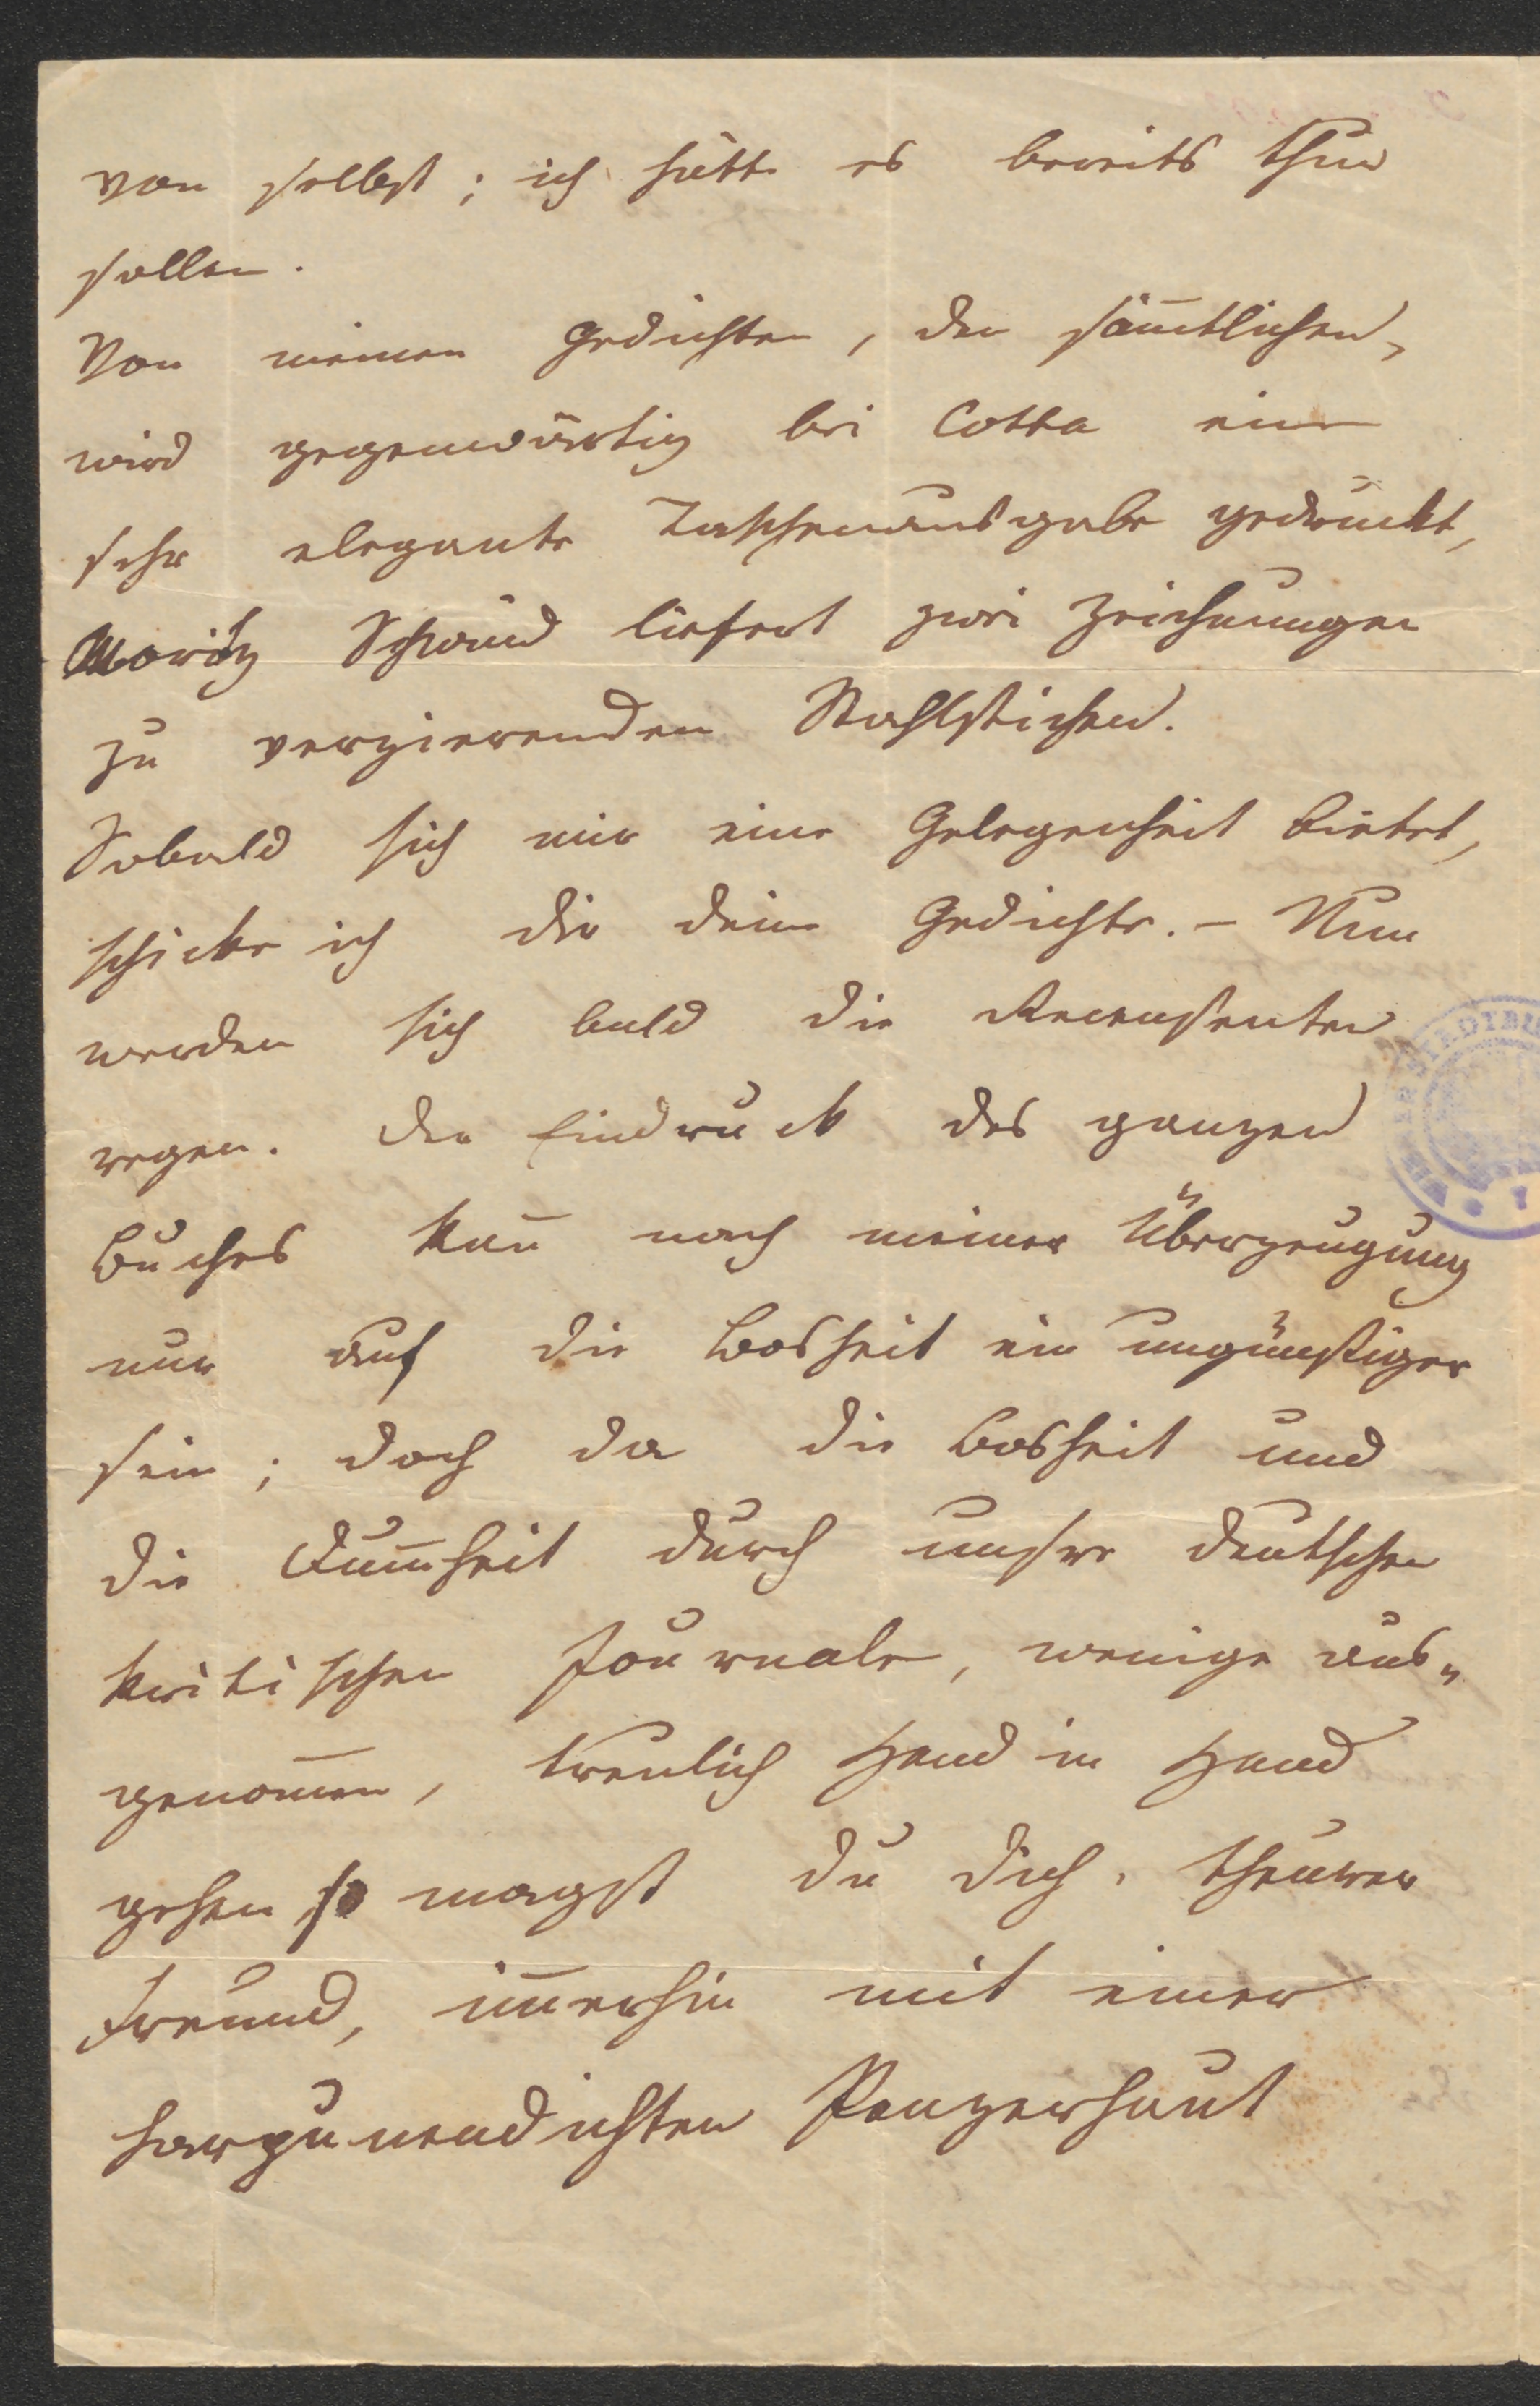 von selbst; ich hätte es bereits thun
sollen.
Von meinen Gedichten, den säm̄tlichen,
wird gegenwärtig bei Cotta eine
sehr elegante Taschenausgabe gedruckt,
Moritz Schwind liefert zwei Zeichnungen
zu verzierenden Stahlstichen.
Sobald sich mir eine Gelegenheit bietet,
schicke ich dir deine Gedichte. – Nun
werden sich bald die Recensenten
regen. Der Eindruck des ganzen
Buches kan̄ nach meiner Überzeugung
nur auf die Bosheit ein ungünstiger
sein; doch da die Bosheit und
die Dum̄heit durch unsre deutschen
kritischen Journale, wenige aus„
genom̄en, treulich Hand in Hand
gehen so magst du dich, theurer
Freund, im̄erhin mit einer
harpunendichten Panzerhaut